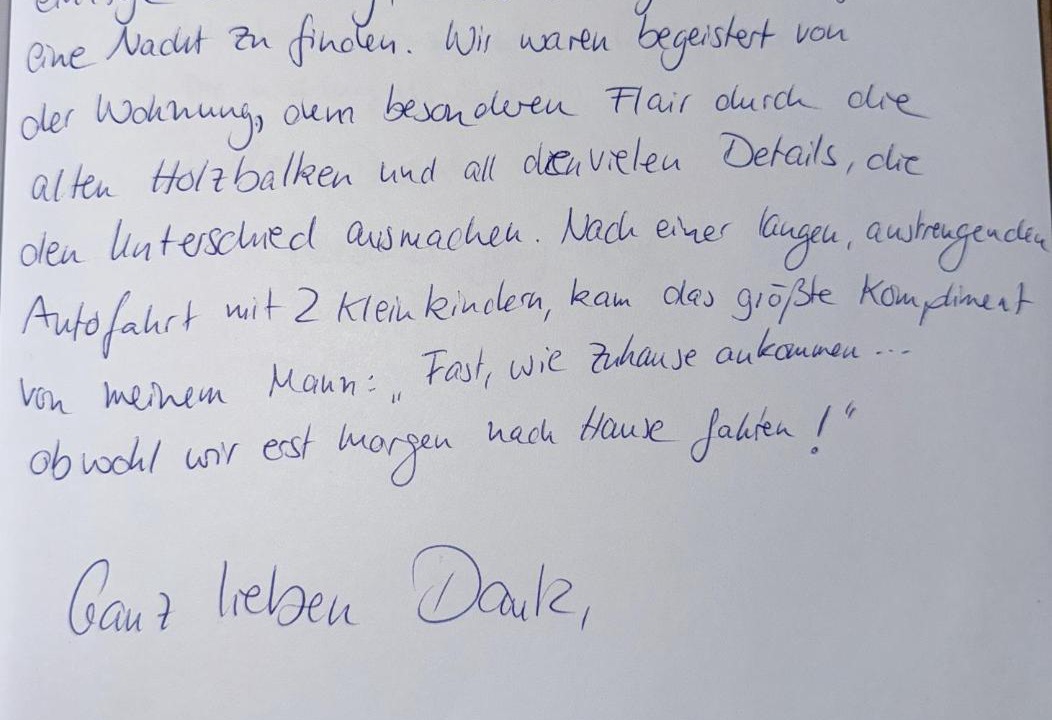 eine Nacht zu finden. Wir waren begeistert von
der Wohnung, dem besonderen Flair durch die
alten Holzbalken und all den vielen Details, die
den Unterschied ausmachen. Nach einer langen, anstrengenden
Autofahrt mit 2 Kleinkindern, kam das größte Kompliment
von meinem Mann: „Fast, wie Zuhause ankommen...
obwohl wir erst morgen nach Hause fahren!“
Ganz lieben Dank,